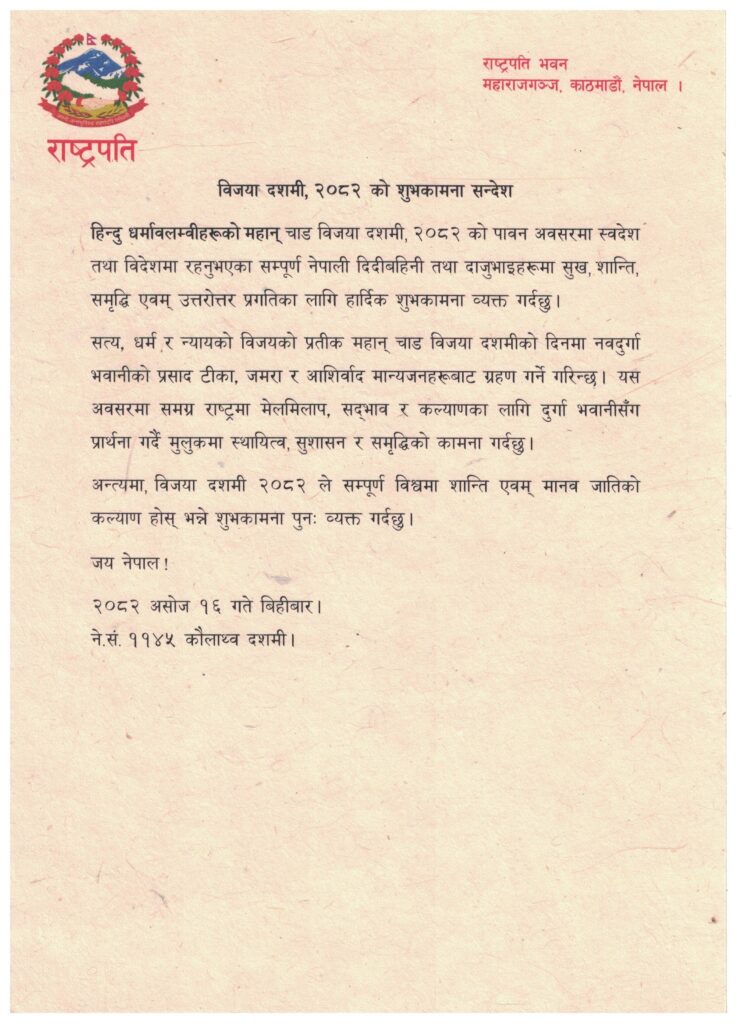 राष्ट्रपति
राष्ट्रपति भवन
महाराजगञ्ज, काठमाडौं, नेपाल ।
विजया दशमी, २०८२ को शुभकामना सन्देश
हिन्दु धर्मावलम्वीहरूको महान् चाड विजया दशमी, २०८२ को पावन अवसरमा स्वदेश
तथा विदेशमा रहनुभएका सम्पूर्ण नेपाली दिदीबहिनी तथा दाजुभाइहरूमा सुख, शान्ति,
समृद्धि एवम् उत्तरोत्तर प्रगतिका लागि हार्दिक शुभकामना व्यक्त गर्दछु।
सत्य, धर्म र न्यायको विजयको प्रतीक महान् चाड विजया दशमीको दिनमा नवदुर्गा
भवानीको प्रसाद टीका, जमरा र आशिर्वाद मान्यजनहरूबाट ग्रहण गर्ने गरिन्छ। यस
अवसरमा समग्र राष्ट्रमा मेलमिलाप, सद्‌भाव र कल्याणका लागि दुर्गा भवानीसँग
प्रार्थना गर्दै मुलुकमा स्थायित्व, सुशासन र समृद्धिको कामना गर्दछु।
अन्त्यमा, विजया दशमी २०८२ ले सम्पूर्ण विश्वमा शान्ति एवम् मानव जातिको
कल्याण होस् भन्ने शुभकामना पुनः व्यक्त गर्दछु।
जय नेपाल!
२०८२ असोज १६ गते बिहीबार।
ने.सं. ११४५ कौलाथ्व दशमी।